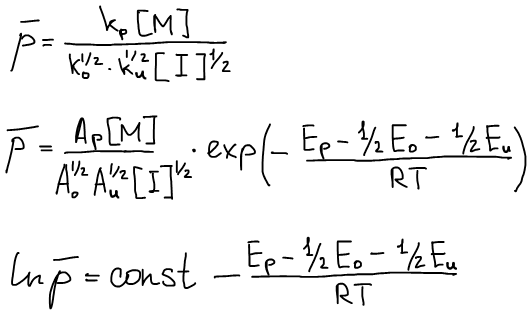 p̄ = kₚ[M] / (k₀^1/2 · kᵤ^1/2 [I]^1/2)
p̄ = Aₚ[M] / (A₀^1/2 Aᵤ^1/2 [I]^1/2) · exp(− (Eₚ − 1/2 E₀ − 1/2 Eᵤ) / RT)
ln p̄ = const − (Eₚ − 1/2 E₀ − 1/2 Eᵤ) / RT